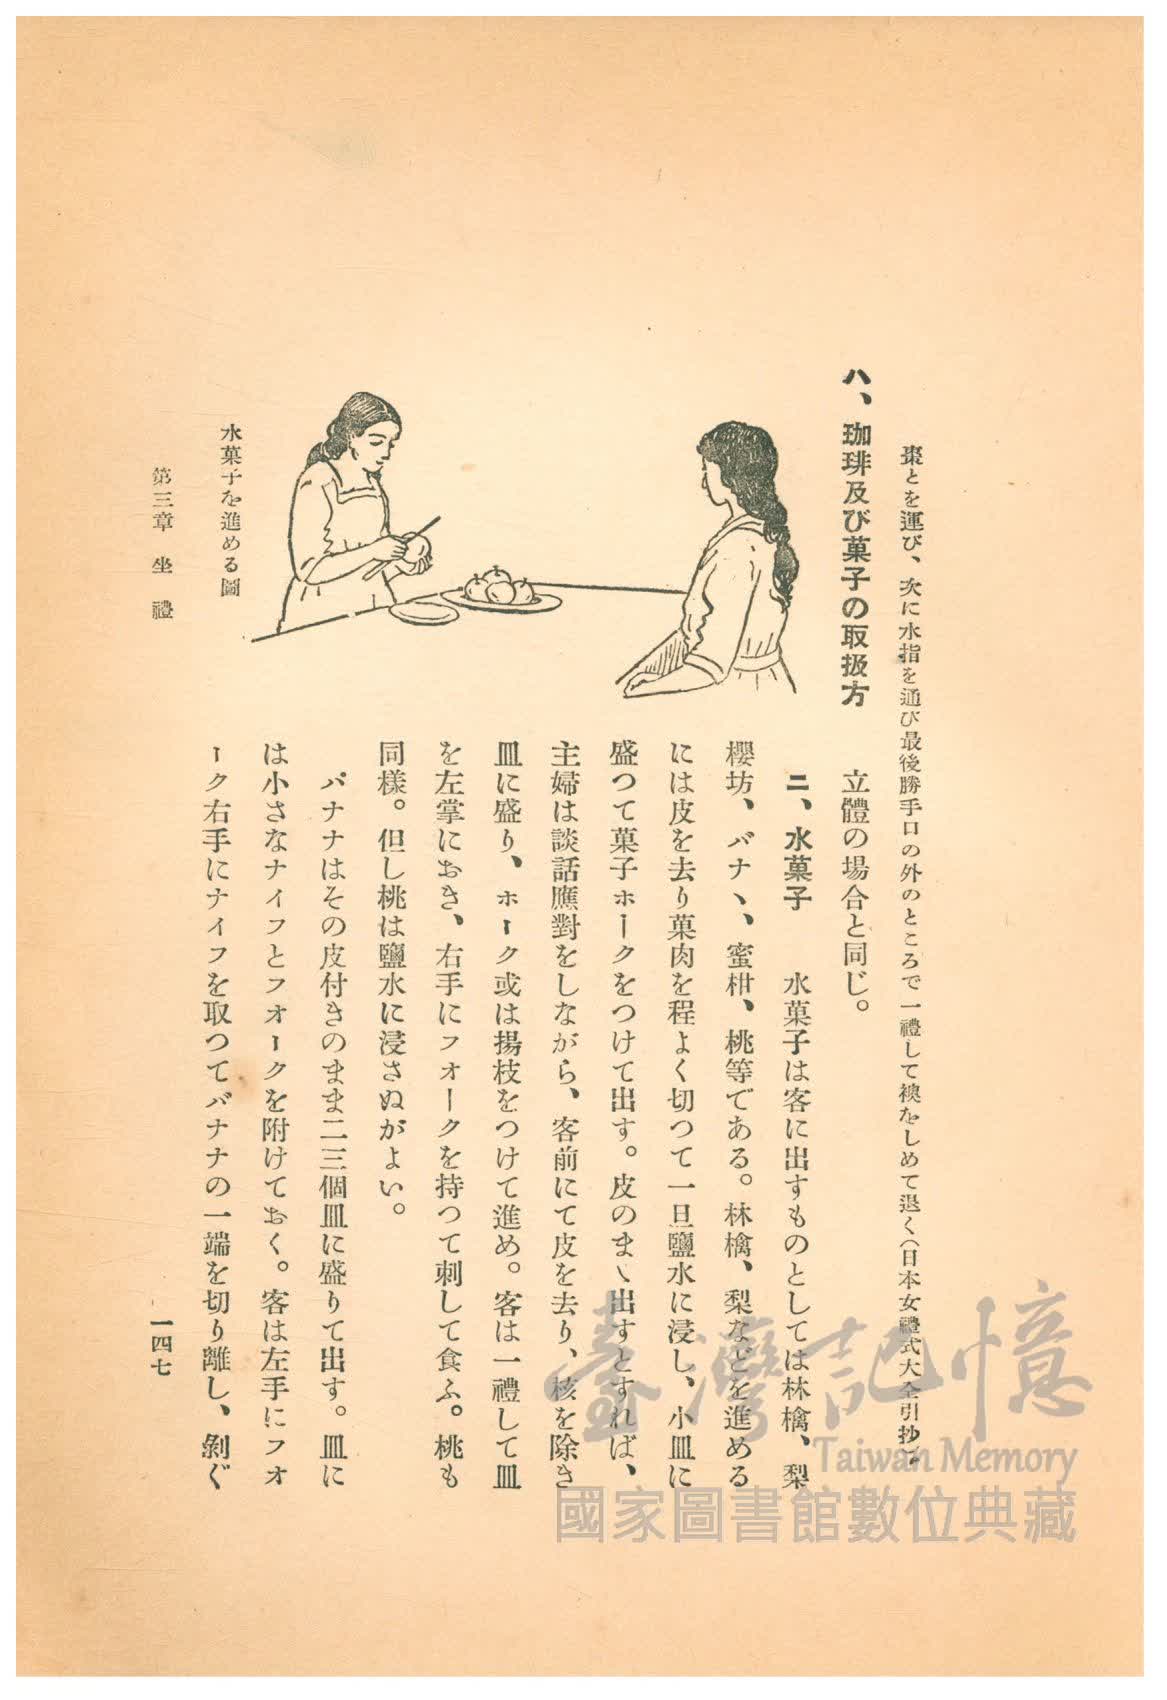 棗とを運び、次に水指を通び最後勝手口の外のところで一禮して襖をしめて退く(日本女禮式大全引抄)
ハ、珈琲及び菓子の取扱方 立體の場合と同じ。
ニ、水菓子 水菓子は客に出すものとしては林檎、梨
櫻坊、バナヽ、蜜柑、桃等である。林檎、梨などを進める
には皮を去り菓肉を程よく切つて一旦鹽水に浸し、小皿に
盛つて菓子ホークをつけて出す。皮のまヽ出すとすれば、
主婦は談話應對をしながら、客前にて皮を去り、核を除き
皿に盛り、ホーク或は揚枝をつけて進め。客は一禮して皿
を左掌におき、右手にフォークを持つて刺して食ふ。桃も
同樣。但し桃は鹽水に浸さぬがよい。
バナナはその皮付きのまま二三個皿に盛りて出す。皿に
は小さなナイフとフオークを附けておく。客は左手にフオ
ーク右手にナイフを取つてバナナの一端を切り離し、剝ぐ
水菓子を進める圖
第三章 坐禮
一四七
臺灣記憶
Taiwan Memory
國家圖書館數位典藏